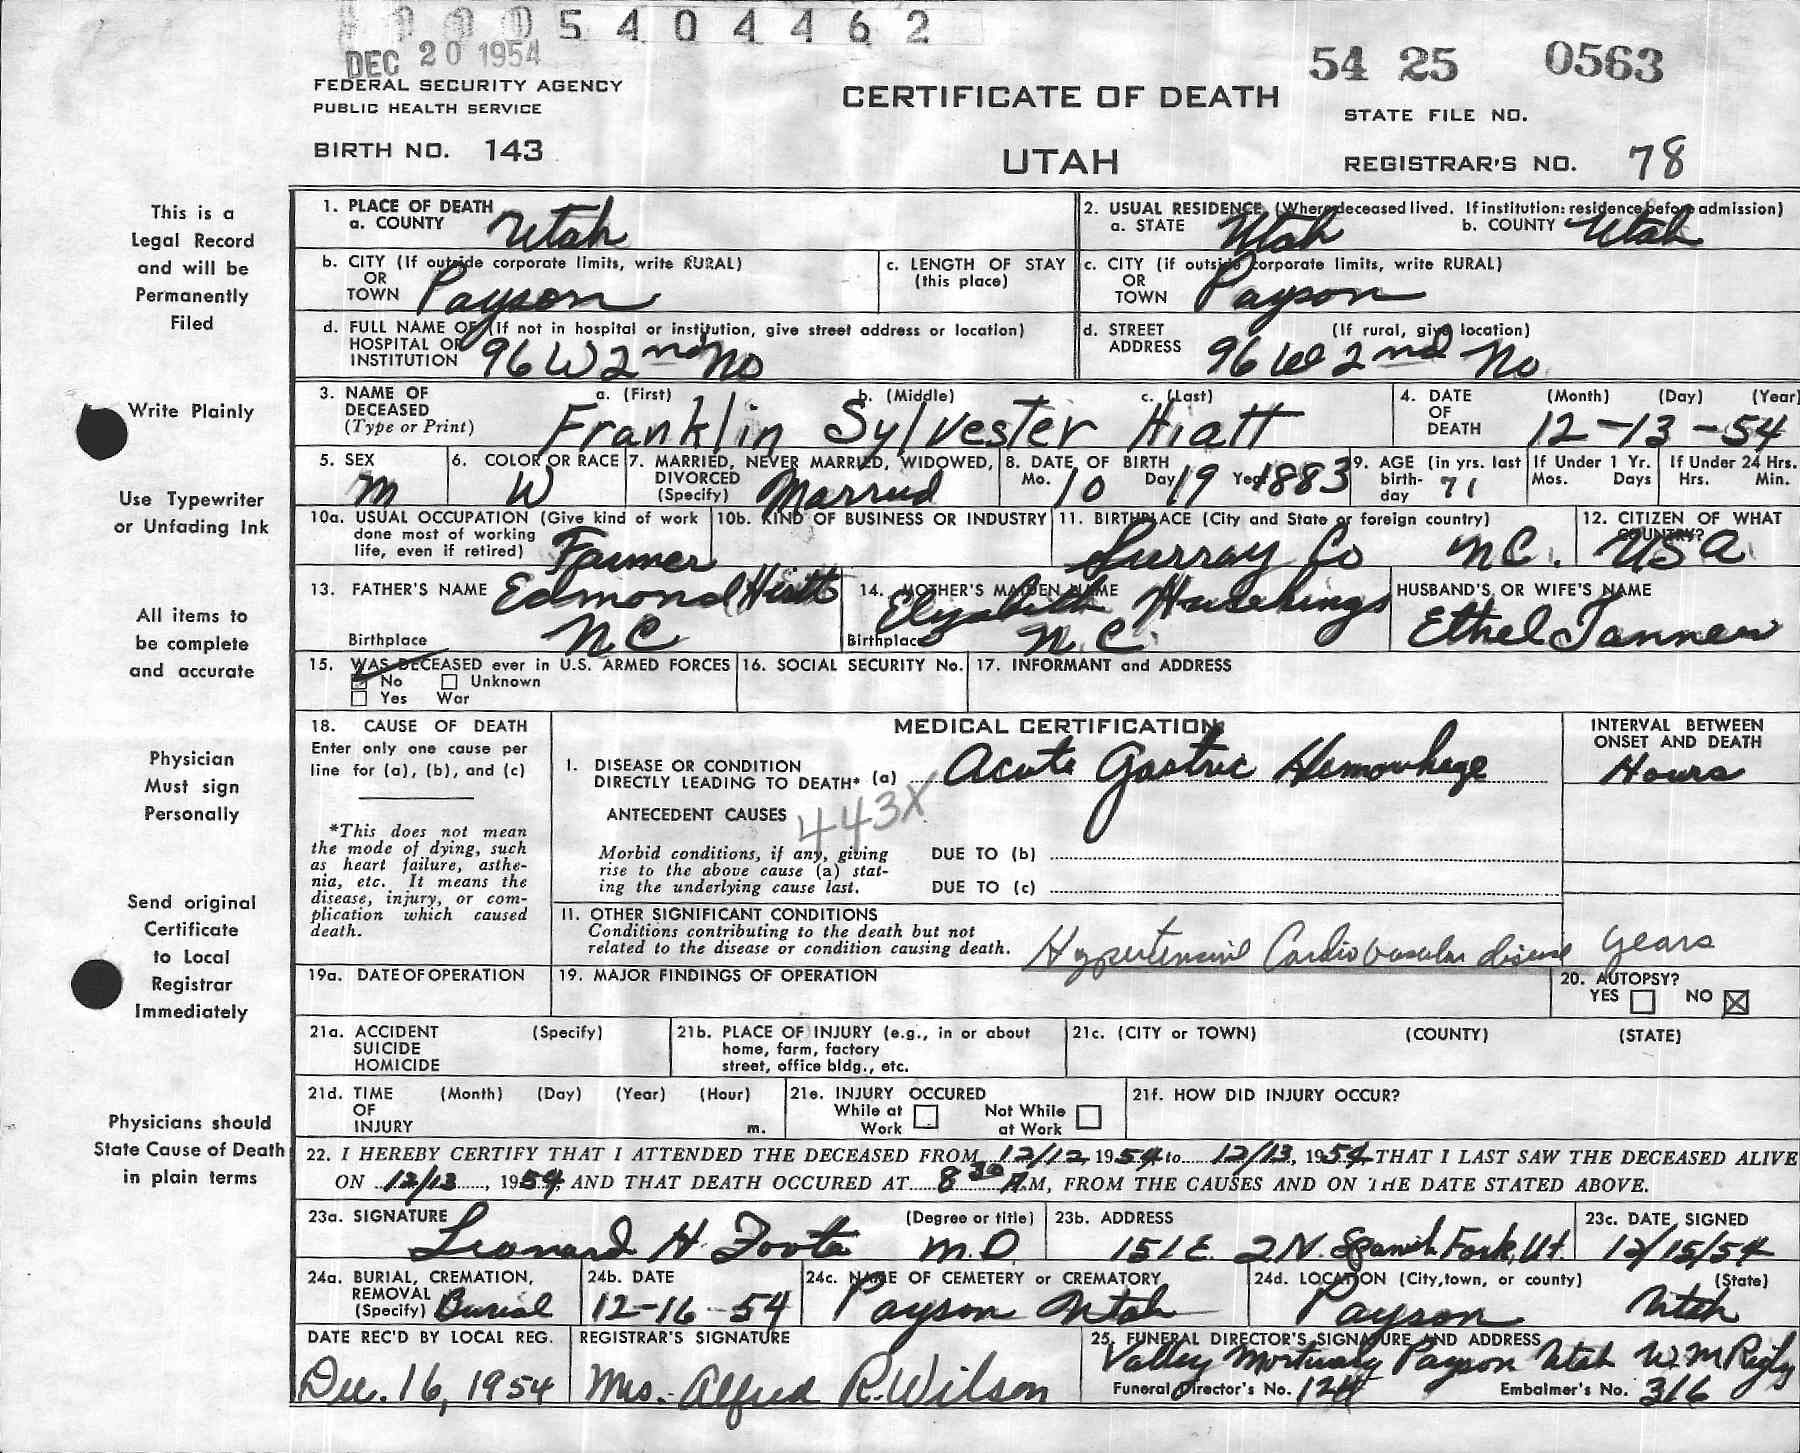 5 4 0 4 4 6 2
DEC 20 1954
54 25 0563
FEDERAL SECURITY AGENCY
PUBLIC HEALTH SERVICE
CERTIFICATE OF DEATH
STATE FILE NO.
BIRTH NO. 143
UTAH
REGISTRAR'S NO. 78
This is a
Legal Record
and will be
Permanently
Filed
Write Plainly
Use Typewriter
or Unfading Ink
All items to
be complete
and accurate
Physician
Must sign
Personally
Send original
Certificate
to Local
Registrar
Immediately
Physicians should
State Cause of Death
in plain terms
1. PLACE OF DEATH
a. COUNTY Utah
2. USUAL RESIDENCE (Where deceased lived. If institution: residence before admission)
a. STATE Utah b. COUNTY Utah
b. CITY (If outside corporate limits, write RURAL)
OR
TOWN Payson
c. LENGTH OF STAY
(this place)
c. CITY (if outside corporate limits, write RURAL)
OR
TOWN Payson
d. FULL NAME OF (If not in hospital or institution, give street address or location)
HOSPITAL OR
INSTITUTION 96 W 2nd No
d. STREET (If rural, give location)
ADDRESS 96 W 2nd No
3. NAME OF a. (First) b. (Middle) c. (Last)
DECEASED
(Type or Print) Franklin Sylvester Hiatt
4. DATE (Month) (Day) (Year)
OF
DEATH 12-13-54
5. SEX
M
6. COLOR OR RACE
W
7. MARRIED, NEVER MARRIED, WIDOWED,
DIVORCED
(Specify) Married
8. DATE OF BIRTH
Mo. 10 Day 19 Year 1883
9. AGE (in yrs. last
birth-
day 71
If Under 1 Yr.
Mos. Days
If Under 24 Hrs.
Hrs. Min.
10a. USUAL OCCUPATION (Give kind of work
done most of working
life, even if retired) Farmer
10b. KIND OF BUSINESS OR INDUSTRY
11. BIRTHPLACE (City and State or foreign country)
Surray Co N.C.
12. CITIZEN OF WHAT
COUNTRY?
USA
13. FATHER'S NAME Edmond Hiatt
Birthplace N.C.
14. MOTHER'S MAIDEN NAME
Elyzabeth
Birthplace N.C.
HUSBAND'S, OR WIFE'S NAME
Ethel Tanner
15. WAS DECEASED ever in U.S. ARMED FORCES
No Unknown
Yes War
16. SOCIAL SECURITY No.
17. INFORMANT and ADDRESS
18. CAUSE OF DEATH
Enter only one cause per
line for (a), (b), and (c)
*This does not mean
the mode of dying, such
as heart failure, asthe-
nia, etc. It means the
disease, injury, or com-
plication which caused
death.
MEDICAL CERTIFICATION
INTERVAL BETWEEN
ONSET AND DEATH
I. DISEASE OR CONDITION
DIRECTLY LEADING TO DEATH* (a) Acute Gastric Hemorrhage
Hours
ANTECEDENT CAUSES 443X
Morbid conditions, if any, giving
rise to the above cause (a) stat-
ing the underlying cause last.
DUE TO (b)
DUE TO (c)
II. OTHER SIGNIFICANT CONDITIONS
Conditions contributing to the death but not
related to the disease or condition causing death.
Hypertensive Cardiovascular disease years
19a. DATE OF OPERATION
19. MAJOR FINDINGS OF OPERATION
20. AUTOPSY?
YES NO
21a. ACCIDENT (Specify)
SUICIDE
HOMICIDE
21b. PLACE OF INJURY (e.g., in or about
home, farm, factory
street, office bldg., etc.
21c. (CITY or TOWN) (COUNTY) (STATE)
21d. TIME (Month) (Day) (Year) (Hour)
OF
INJURY m.
21e. INJURY OCCURED
While at Work
Not While at Work
21f. HOW DID INJURY OCCUR?
22. I HEREBY CERTIFY THAT I ATTENDED THE DECEASED FROM 12/12, 1954 to 12/13, 1954 THAT I LAST SAW THE DECEASED ALIVE
ON 12/13, 1954 AND THAT DEATH OCCURED AT 8 30 A.M, FROM THE CAUSES AND ON THE DATE STATED ABOVE.
23a. SIGNATURE (Degree or title)
Leonard H. Foote M.D.
23b. ADDRESS
151 E. 2 N. Spanish Fork, Ut
23c. DATE SIGNED
12/15/54
24a. BURIAL, CREMATION,
REMOVAL
(Specify) Burial
24b. DATE
12-16-54
24c. NAME OF CEMETERY or CREMATORY
Payson Utah
24d. LOCATION (City, town, or county) (State)
Payson Utah
DATE REC'D BY LOCAL REG.
Dec. 16, 1954
REGISTRAR'S SIGNATURE
Mrs. Alfred R. Wilson
25. FUNERAL DIRECTOR'S SIGNATURE AND ADDRESS
Valley Mortuary Payson Utah W. M Rigby
Funeral Director's No. 124 Embalmer's No. 316